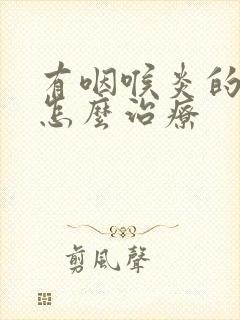 有咽喉炎的
怎麼治療
剪風聲